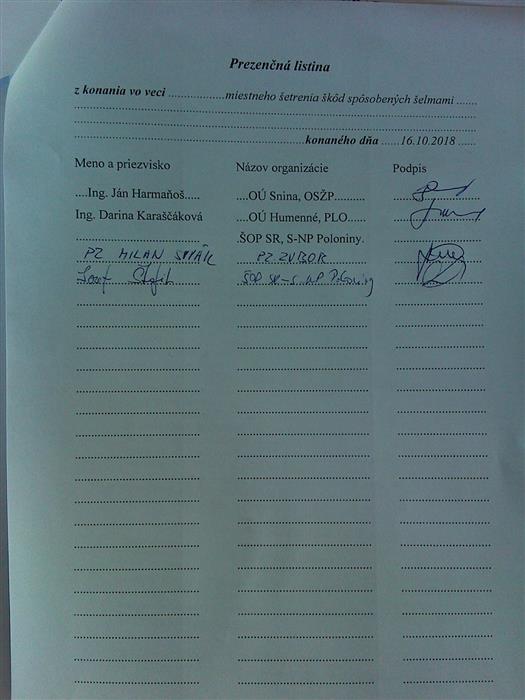 Prezenčná listina
z konania vo veci ....................miestneho šetrenia škôd spôsobených šelmami .......
konaného dňa ......16.10.2018 ......
Meno a priezvisko Názov organizácie Podpis
....Ing. Ján Harmaňoš..... ....OÚ Snina, OSŽP..........
Ing. Darina Karaščáková ....OÚ Humenné, PLO......
.ŠOP SR, S-NP Poloniny.
PZ MILAN PZ ZUBOR
Jozef ŠOP SR-S NP Poloniny